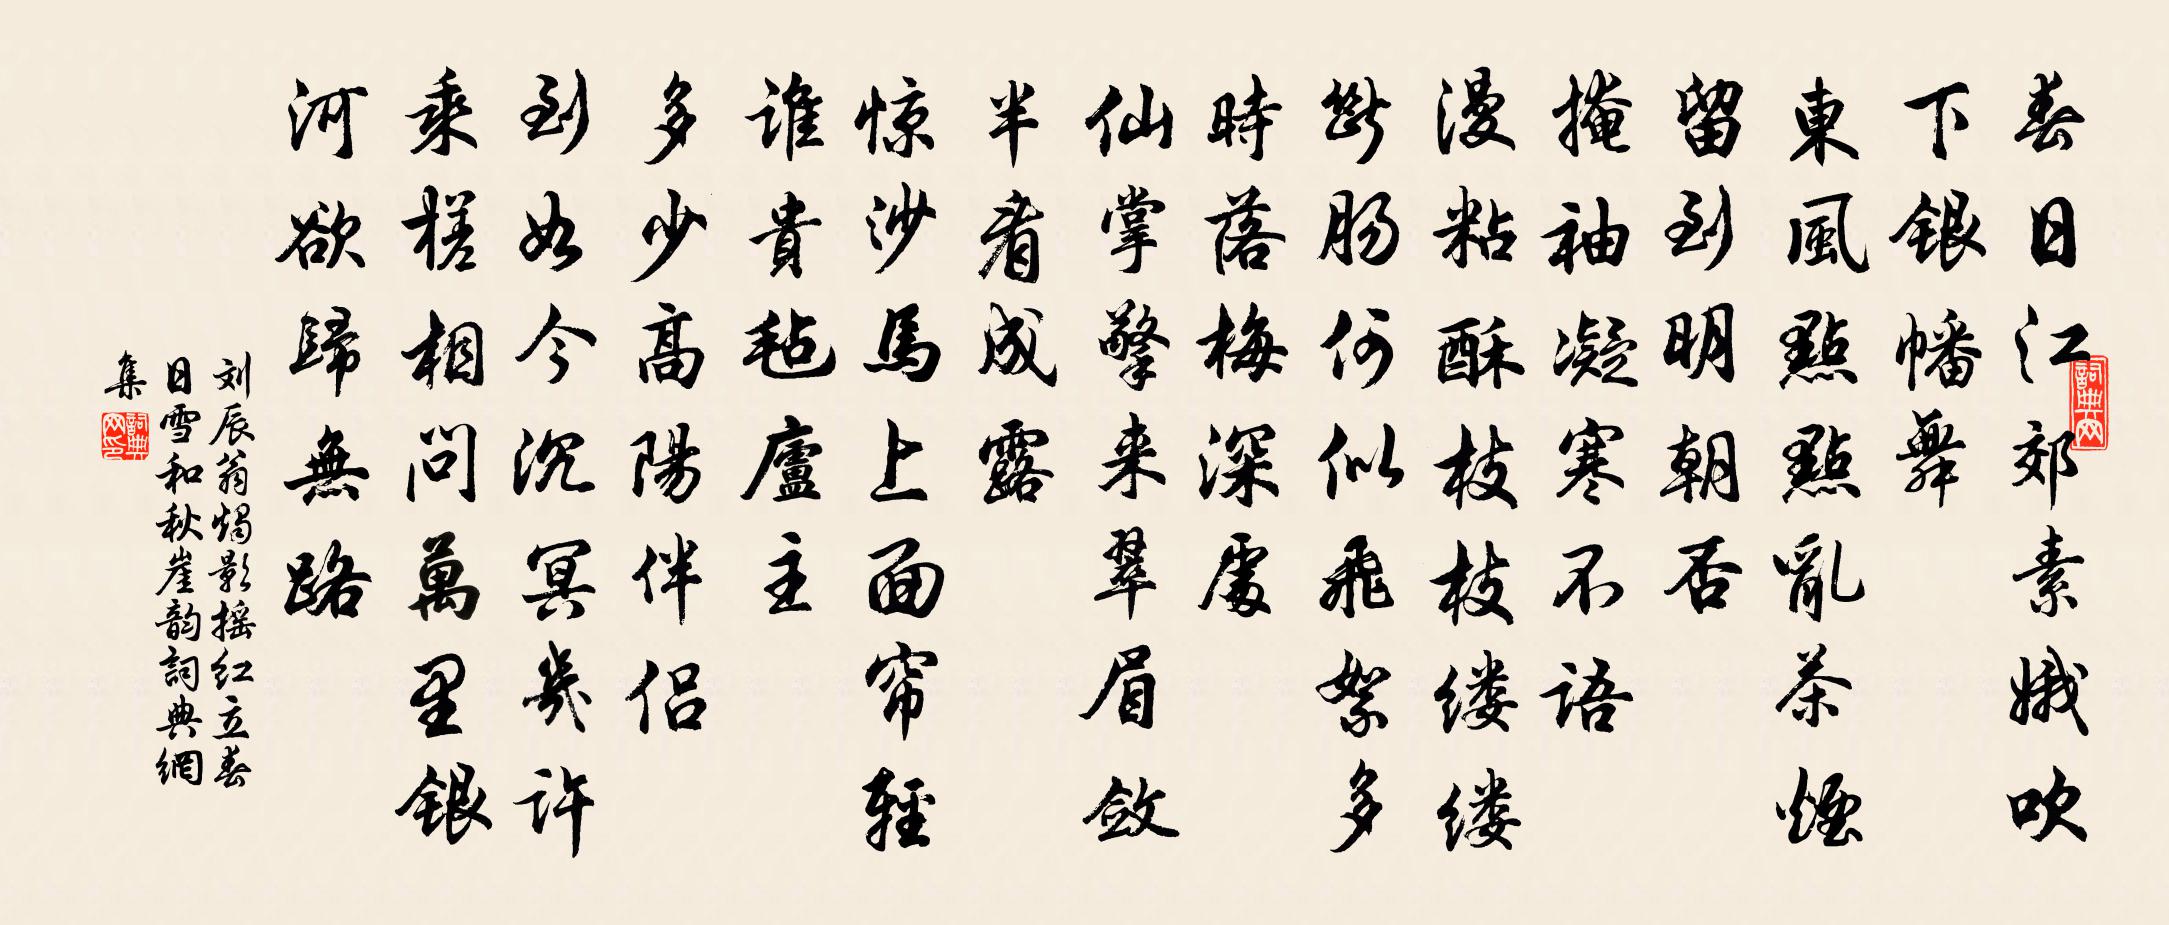 春日江郊素娥吹
下銀幡舞
東風點點亂茶煙
留到明朝否
掩袖凝寒不語
漫粘酥枝枝缕缕
斷肠何似飛絮多
時落梅深處
仙掌擎来翠眉斂
半看成露
惊沙馬上面帘輕
谁貴毡廬主
多少高陽伴侣
到如今沉冥幾许
乘槎相问萬里銀
河欲歸無路
刘辰翁燭影摇红立春
日雪和秋崖韵詞典網
集
詞典网
詞典网印